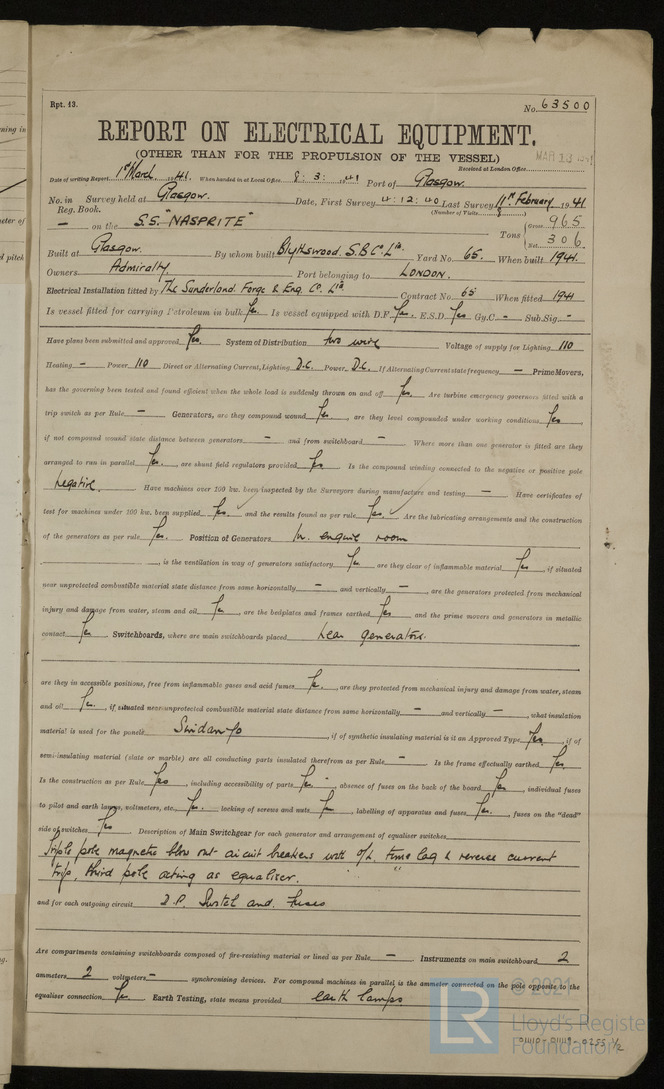 Rpt. 13.
No. 63500
REPORT ON ELECTRICAL EQUIPMENT.
(OTHER THAN FOR THE PROPULSION OF THE VESSEL)
Received at London Office
Date of writing Report 1st March 1941. When handed in at Local Office 8: 3: 1941 Port of Glasgow.
No. in Survey held at Glasgow. Date, First Survey 4:12:40 Last Survey 11th February 1941
Reg. Book. (Number of Visits 8)
— on the S.S. "NASPRITE" Tons Gross 965
Net 306
Built at Glasgow. By whom built Blythswood S.B. Co. Ltd. Yard No. 65. When built 1941.
Owners Admiralty Port belonging to LONDON.
Electrical Installation fitted by The Sunderland Forge & Eng. Co. Ltd Contract No. 65 When fitted 1941
Is vessel fitted for carrying Petroleum in bulk Yes. Is vessel equipped with D.F. Yes. E.S.D. Yes Gy.C. - Sub.Sig. -
Have plans been submitted and approved Yes. System of Distribution two wire Voltage of supply for Lighting 110
Heating — Power 110 Direct or Alternating Current, Lighting D.C. Power D.C. If Alternating Current state frequency — Prime Movers,
has the governing been tested and found efficient when the whole load is suddenly thrown on and off Yes. Are turbine emergency governors fitted with a
trip switch as per Rule — Generators, are they compound wound Yes, are they level compounded under working conditions Yes,
if not compound wound state distance between generators — and from switchboard — Where more than one generator is fitted are they
arranged to run in parallel Yes., are shunt field regulators provided Yes. Is the compound winding connected to the negative or positive pole
Negative. Have machines over 100 kw. been inspected by the Surveyors during manufacture and testing — Have certificates of
test for machines under 100 kw. been supplied Yes. and the results found as per rule Yes. Are the lubricating arrangements and the construction
of the generators as per rule Yes. Position of Generators In engine room
, is the ventilation in way of generators satisfactory Yes are they clear of inflammable material Yes, if situated
near unprotected combustible material state distance from same horizontally — and vertically —, are the generators protected from mechanical
injury and damage from water, steam and oil Yes, are the bedplates and frames earthed Yes and the prime movers and generators in metallic
contact Yes. Switchboards, where are main switchboards placed Near generators.
are they in accessible positions, free from inflammable gases and acid fumes Yes, are they protected from mechanical injury and damage from water, steam
and oil Yes., if situated near unprotected combustible material state distance from same horizontally — and vertically —, what insulation
material is used for the panels Sindanyo, if of synthetic insulating material is it an Approved Type Yes, if of
semi-insulating material (slate or marble) are all conducting parts insulated therefrom as per Rule — Is the frame effectually earthed Yes.
Is the construction as per Rule Yes, including accessibility of parts Yes, absence of fuses on the back of the board Yes, individual fuses
to pilot and earth lamps, voltmeters, etc. Yes. locking of screws and nuts Yes, labelling of apparatus and fuses Yes., fuses on the "dead"
side of switches Yes Description of Main Switchgear for each generator and arrangement of equaliser switches
Triple pole magnetic blow out circuit breakers with o/L, time lag & reverse current
trip, third pole acting as equaliser.
and for each outgoing circuit D.P. Switch and Fuses
Are compartments containing switchboards composed of fire-resisting material or lined as per Rule —. Instruments on main switchboard 2
ammeters 2 voltmeters — synchronising devices. For compound machines in parallel is the ammeter connected on the pole opposite to the
equaliser connection Yes. Earth Testing, state means provided earth lamps
© 2021
Lloyd's Register
Foundation
01110-01119-0255 1/2